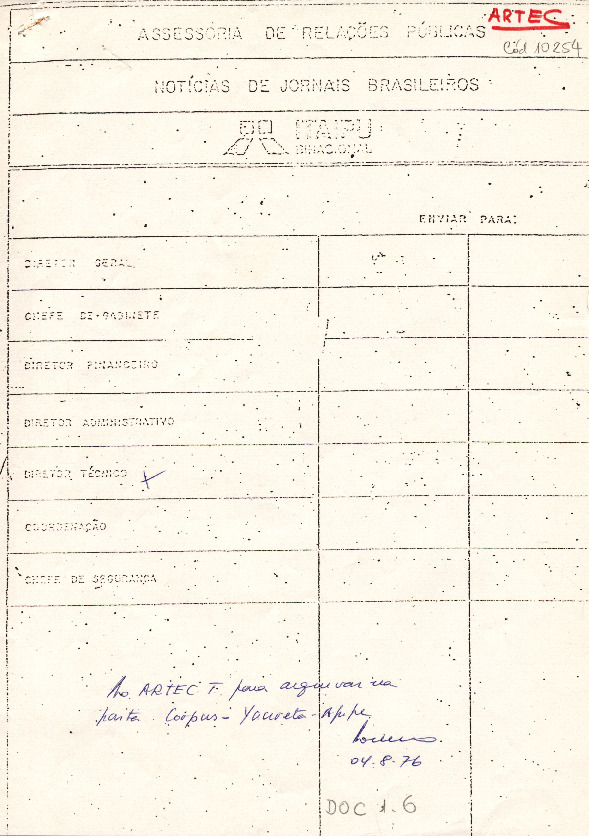 ARTEC
ASSESSORIA DE RELAÇÕES PÚBLICAS
Cód 10254
NOTÍCIAS DE JORNAIS BRASILEIROS
ITAIPU
BINACIONAL
ENVIAR PARA:
DIRETOR GERAL
CHEFE DE GABINETE
DIRETOR FINANCEIRO
DIRETOR ADMINISTRATIVO
DIRETOR TÉCNICO X
COORDENAÇÃO
CHEFE DE SEGURANÇA
Ao ARTEC T. para arquivar na
pasta Corpus - Yacireta - Apipe
04.8.76
DOC 1.6